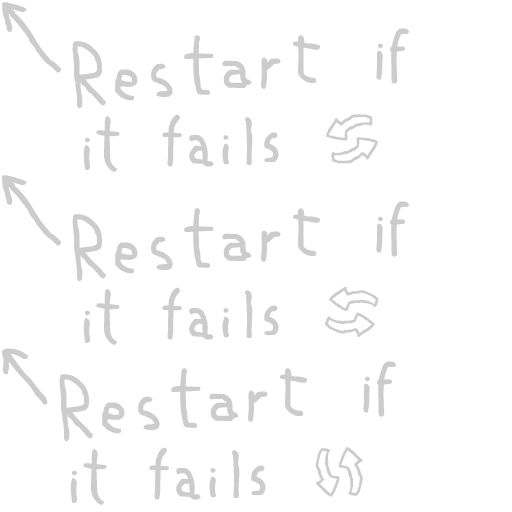 Restart if
it fails
Restart if
it fails
Restart if
it fails